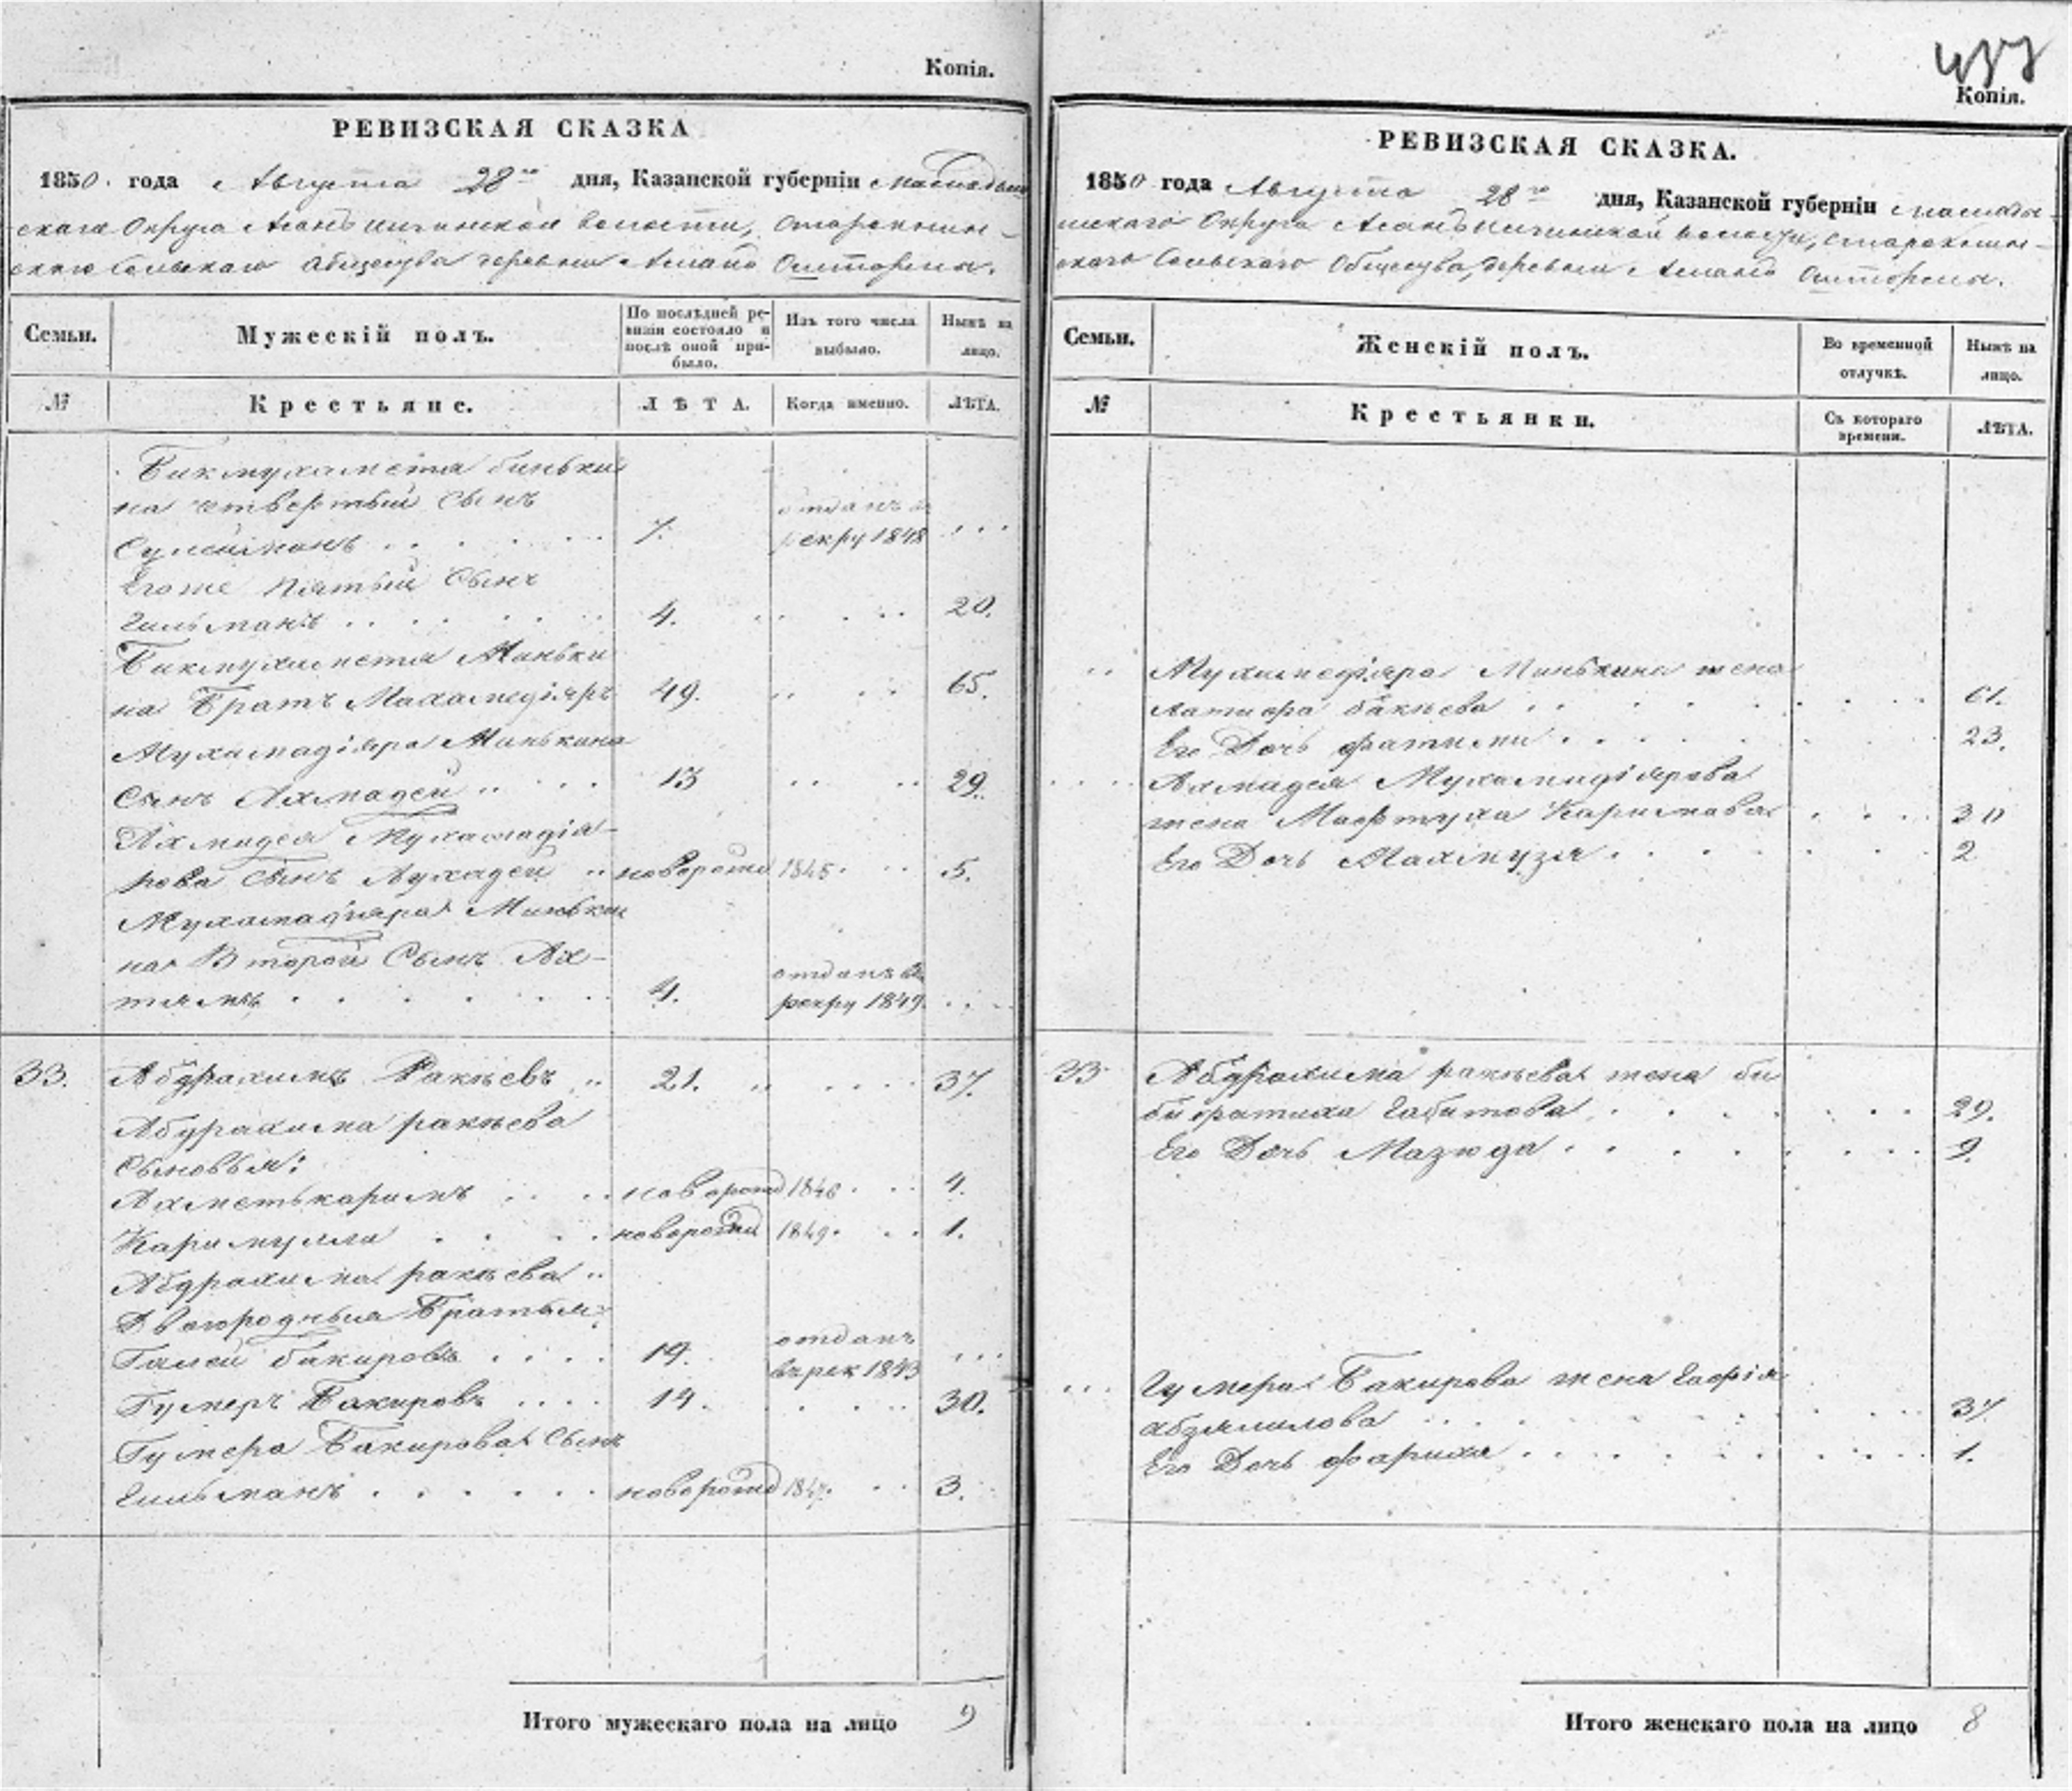 Копія.
РЕВИЗСКАЯ СКАЗКА
1850. года Августа 28го дня, Казанской губерніи
скаго Округа волости,
скаго Сельскаго Общества деревни
Семьи.
Мужескій полъ.
По послѣдней ре-
визіи состояло и
послѣ оной при-
было.
Изъ того числа
выбыло.
Нынѣ на
лицо.
№
Крестьяне.
ЛѢТА.
Когда именно.
ЛѢТА.
Бикмухаметя
на четвертый сынъ отданъ въ
Сулейманъ . . . . . 7. рекру 1848 . . .
Егоже пятый сынъ
Гильманъ . . . . . . 4. . . . . 20.
Бикмухаметя Минъки
на Братъ Махамедіяръ 49. . . . . 65.
Мухамадіяра Минькина
сынъ Ахмадей . . . . 13 . . . . 29.
Ахмадея Мухамадія-
рова сынъ новорожд 1845. . . 5.
Мухамадіяра Миньки
на Второй Сынъ Ах- отданъ въ
тямъ . . . . . . 4. рекру 1849. . . .
33. Абдрахимъ Ракѣевъ . . 21. . . . . . 37.
Абдрахима ракѣева
Сыновья:
Ахметькаримъ . . . новорожд 1846 . . . 4.
Каримулла . . . . новорожд 1849. . . 1.
Абдрахима ракѣева
Двоюродныя Братья: отданъ
Галей бакировъ . . . . 19. въ рек 1843 . . .
Гумеръ Бакировъ . . . . 14. . . . . 30.
Гумера Бакирова Сынъ
Гильманъ . . . . . . новорожд 1847. . . 3.
Итого мужескаго пола на лицо 9
437
Копія.
РЕВИЗСКАЯ СКАЗКА.
1850 года Августа 28го дня, Казанской губерніи
скаго Округа волости,
скаго Сельскаго Общества, деревни
Семьи.
Женскій полъ.
Во временной
отлучкѣ.
Нынѣ на
лицо.
№
Крестьянки.
Съ котораго
времени.
ЛѢТА.
Мухамедіяра Минькина жена
бакѣева . . . . . . . . 61.
Его Дочь фатима . . . . . . . 23.
Ахмадея Мухамадіярова
жена Мафтуха Каримова . . . . 30
Его Дочь . . . . . . . 2
33 Абдрахима ракѣева жена би
Габитова . . . . . . . . 29.
Его Дочь Мазюда . . . . . . . . 9.
Гумера Бакирова жена
. . . . . . . . . 37.
Его Дочь фариха . . . . . . . . 1.
Итого женскаго пола на лицо 8